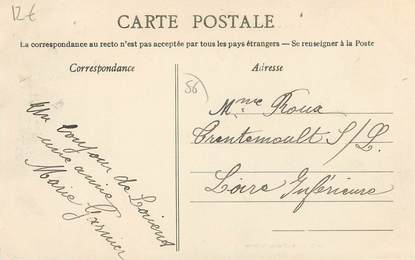 12€
CARTE POSTALE
La correspondance au recto n'est pas acceptée par tous les pays étrangers — Se renseigner à la Poste
Correspondance
Adresse
56
Un bonjour de Lorient
une amie
Marie Garnier
Mme Roux
Trentemoult S/L.
Loire Inférieure